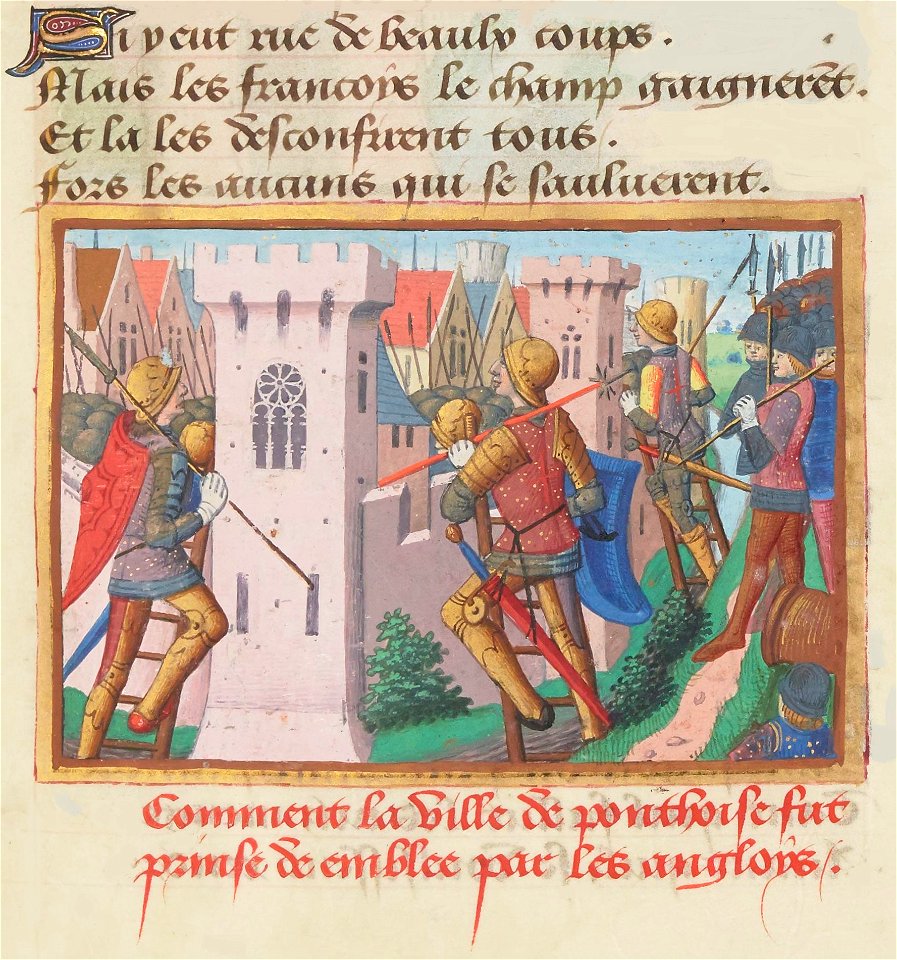 Si y eut rue de beaulx coups.
Mais les francoys le champ gaignerēt.
Et la les desconfirent tous.
Fors les aucuns qui se saulverent.
Comment la ville de ponthoise fut
prinse de emblee par les angloys.